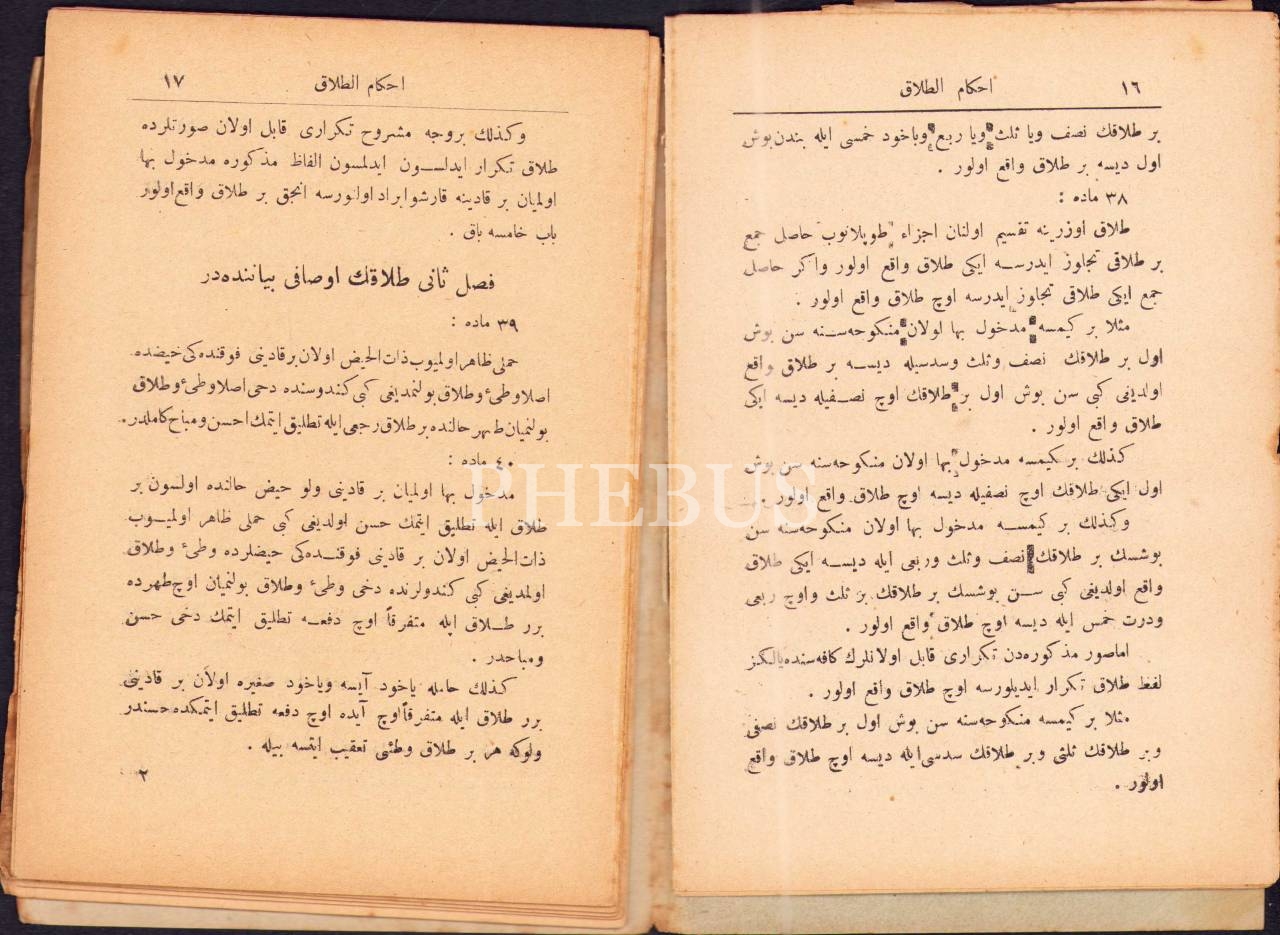 ١٦
احكام الطلاق
بر طلاقك نصف ويا ثلث ويا ربع وياخود خمسى ايله بندن بوش
اول ديسه بر طلاق واقع اولور .
٣٨ ماده :
طلاق اوزرينه تقسيم اولنان اجزاء طوپلانوب حاصل جمع
بر طلاقى تجاوز ايدرسه ايكى طلاق واقع اولور واكر حاصل
جمع ايكى طلاقى تجاوز ايدرسه اوچ طلاق واقع اولور .
مثلا بر كيمسه مدخول بها اولان منكوحه‌سنه سن بوش
اول بر طلاقك نصف وثلث وسدسيله ديسه بر طلاق واقع
اولديغى كبى سن بوش اول بر طلاقك اوچ نصفيله ديسه ايكى
طلاق واقع اولور .
كذلك بر كيمسه مدخول بها اولان منكوحه‌سنه سن بوش
اول ايكى طلاقك اوچ نصفيله ديسه اوچ طلاق واقع اولور .
وكذلك بر كيمسه مدخول بها اولان منكوحه‌سنه سن
بوشسك بر طلاقك نصف وثلث وربعى ايله ديسه ايكى طلاق
واقع اولديغى كبى سن بوشسك بر طلاقك بر ثلث واوچ ربعى
ودرت خمس ايله ديسه اوچ طلاق واقع اولور .
اماصور مذكوره‌دن تكرارى قابل اولانلرك كافه‌سنده يالكز
لفظ طلاق تكرار ايديلورسه اوچ طلاق واقع اولور .
مثلا بر كيمسه منكوحه‌سنه سن بوش اول بر طلاقك نصفى
وبر طلاقك ثلثى وبر طلاقك سدسى ايله ديسه اوچ طلاق واقع
اولور .
احكام الطلاق
١٧
وكذلك بروجه مشروح تكرارى قابل اولان صورتلرده
طلاق تكرار ايدلسون ايدلمسون الفاظ مذكوره مدخول بها
اولميان بر قادينه قارشو ايراد اولنورسه انجق بر طلاق واقع اولور
باب خامسه باق .
فصل ثانى طلاقك اوصافى بياننده‌در
٣٩ ماده :
حملى ظاهر اولميوب ذات الحيض اولان بر قادينى فوقنده‌كى حيضده
اصلا وطىء وطلاق بولنمديغى كبى كندوسنده دخى اصلا وطىء وطلاق
بولنميان طهر حالنده بر طلاق رجعى ايله تطليق ايتمك احسن ومباح كاملدر.
٤٠ ماده :
مدخول بها اولميان بر قادينى ولو حيض حالنده اولسون بر
طلاق ايله تطليق ايتمك حسن اولديغى كبى حملى ظاهر اولميوب
ذات الحيض اولان بر قادينى فوقنده‌كى حيضلرده وطىء وطلاق
اولمديغى كبى كندولرنده دخى وطىء وطلاق بولنميان اوچ طهرده
برر طلاق ايله متفرقاً اوچ دفعه تطليق ايتمك دخى حسن
ومباحدر .
كذلك حامله ياخود آيسه وياخود صغيره اولان بر قادينى
برر طلاق ايله متفرقاً اوچ آيده اوچ دفعه تطليق ايتمكده حسندر
ولوكه هر بر طلاق وطئى تعقيب ايتسه بيله .
٢
PHEBUS